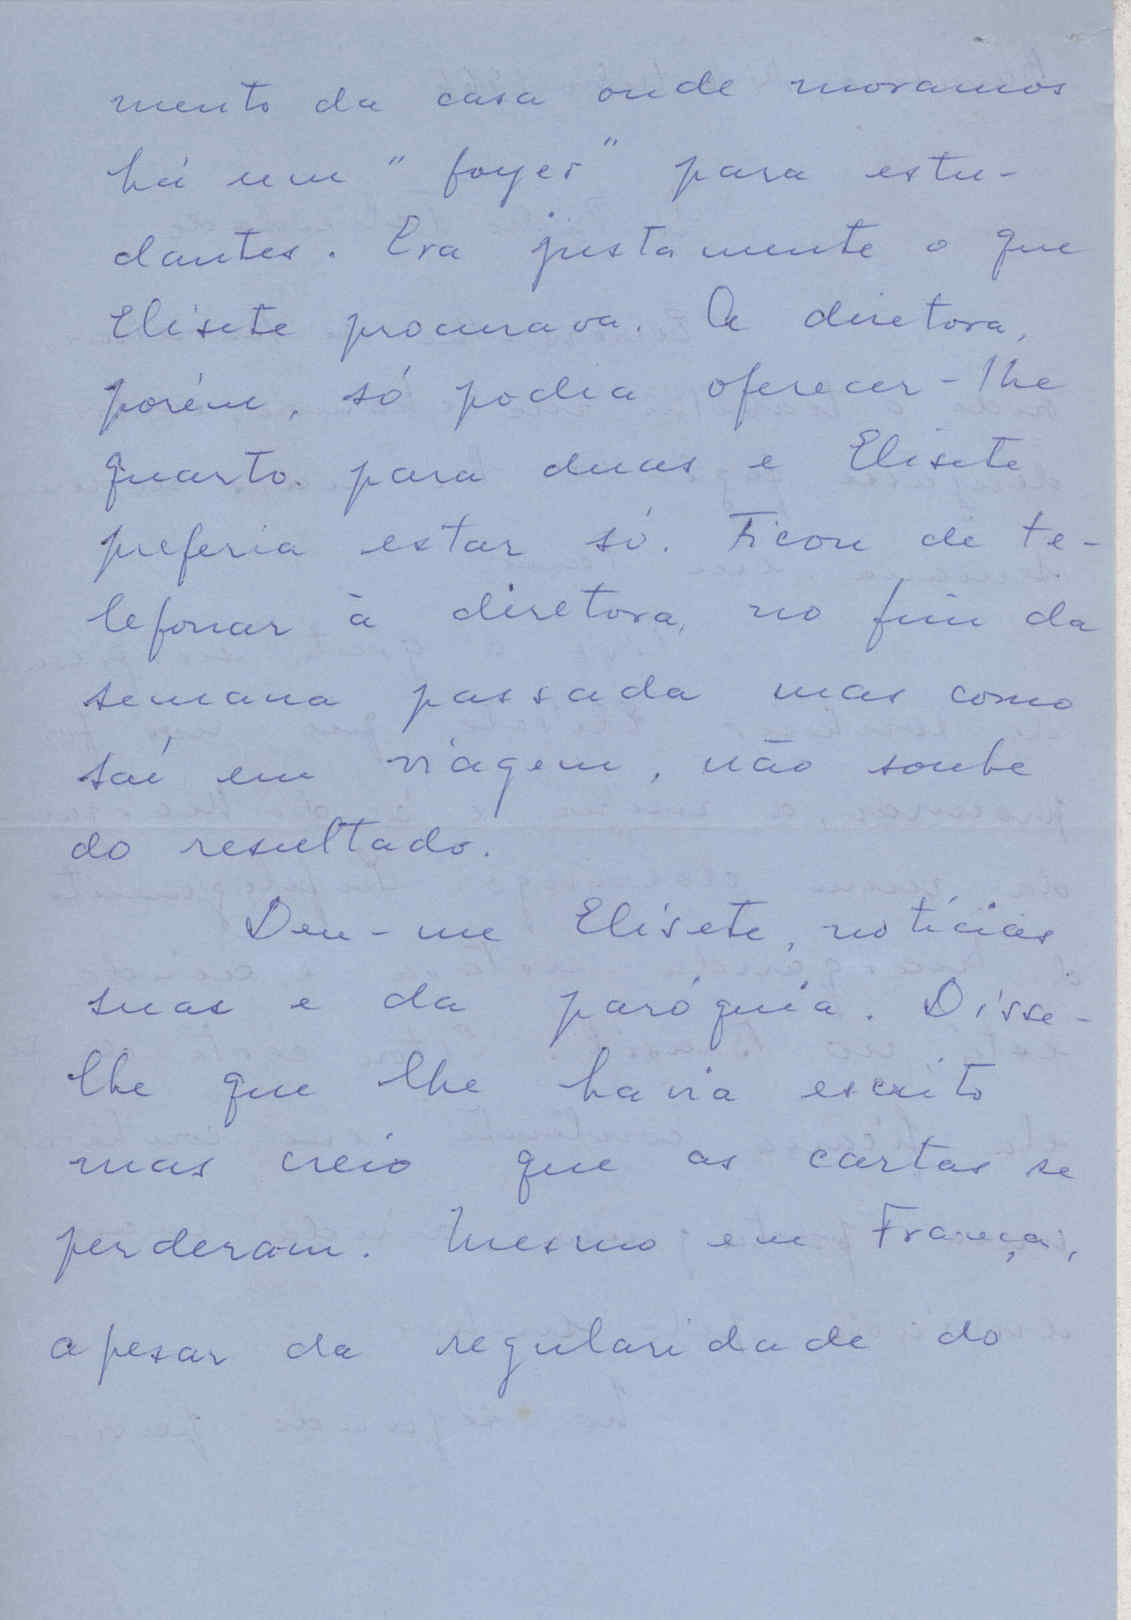 mento da casa onde moramos
há um "foyer" para estu-
dantes. Era justamente o que
Elisete procurava. A diretora,
porém, só podia oferecer-lhe
quarto para duas e Elisete
preferia estar só. Ficou de te-
lefonar à diretora, no fim da
semana passada mas como
saí em viagem, não soube
do resultado.
Deu-me Elisete, notícias
suas e da paróquia. Disse-
lhe que lhe havia escrito
mas creio que as cartas se
perderam. Mesmo em França,
apesar da regularidade do